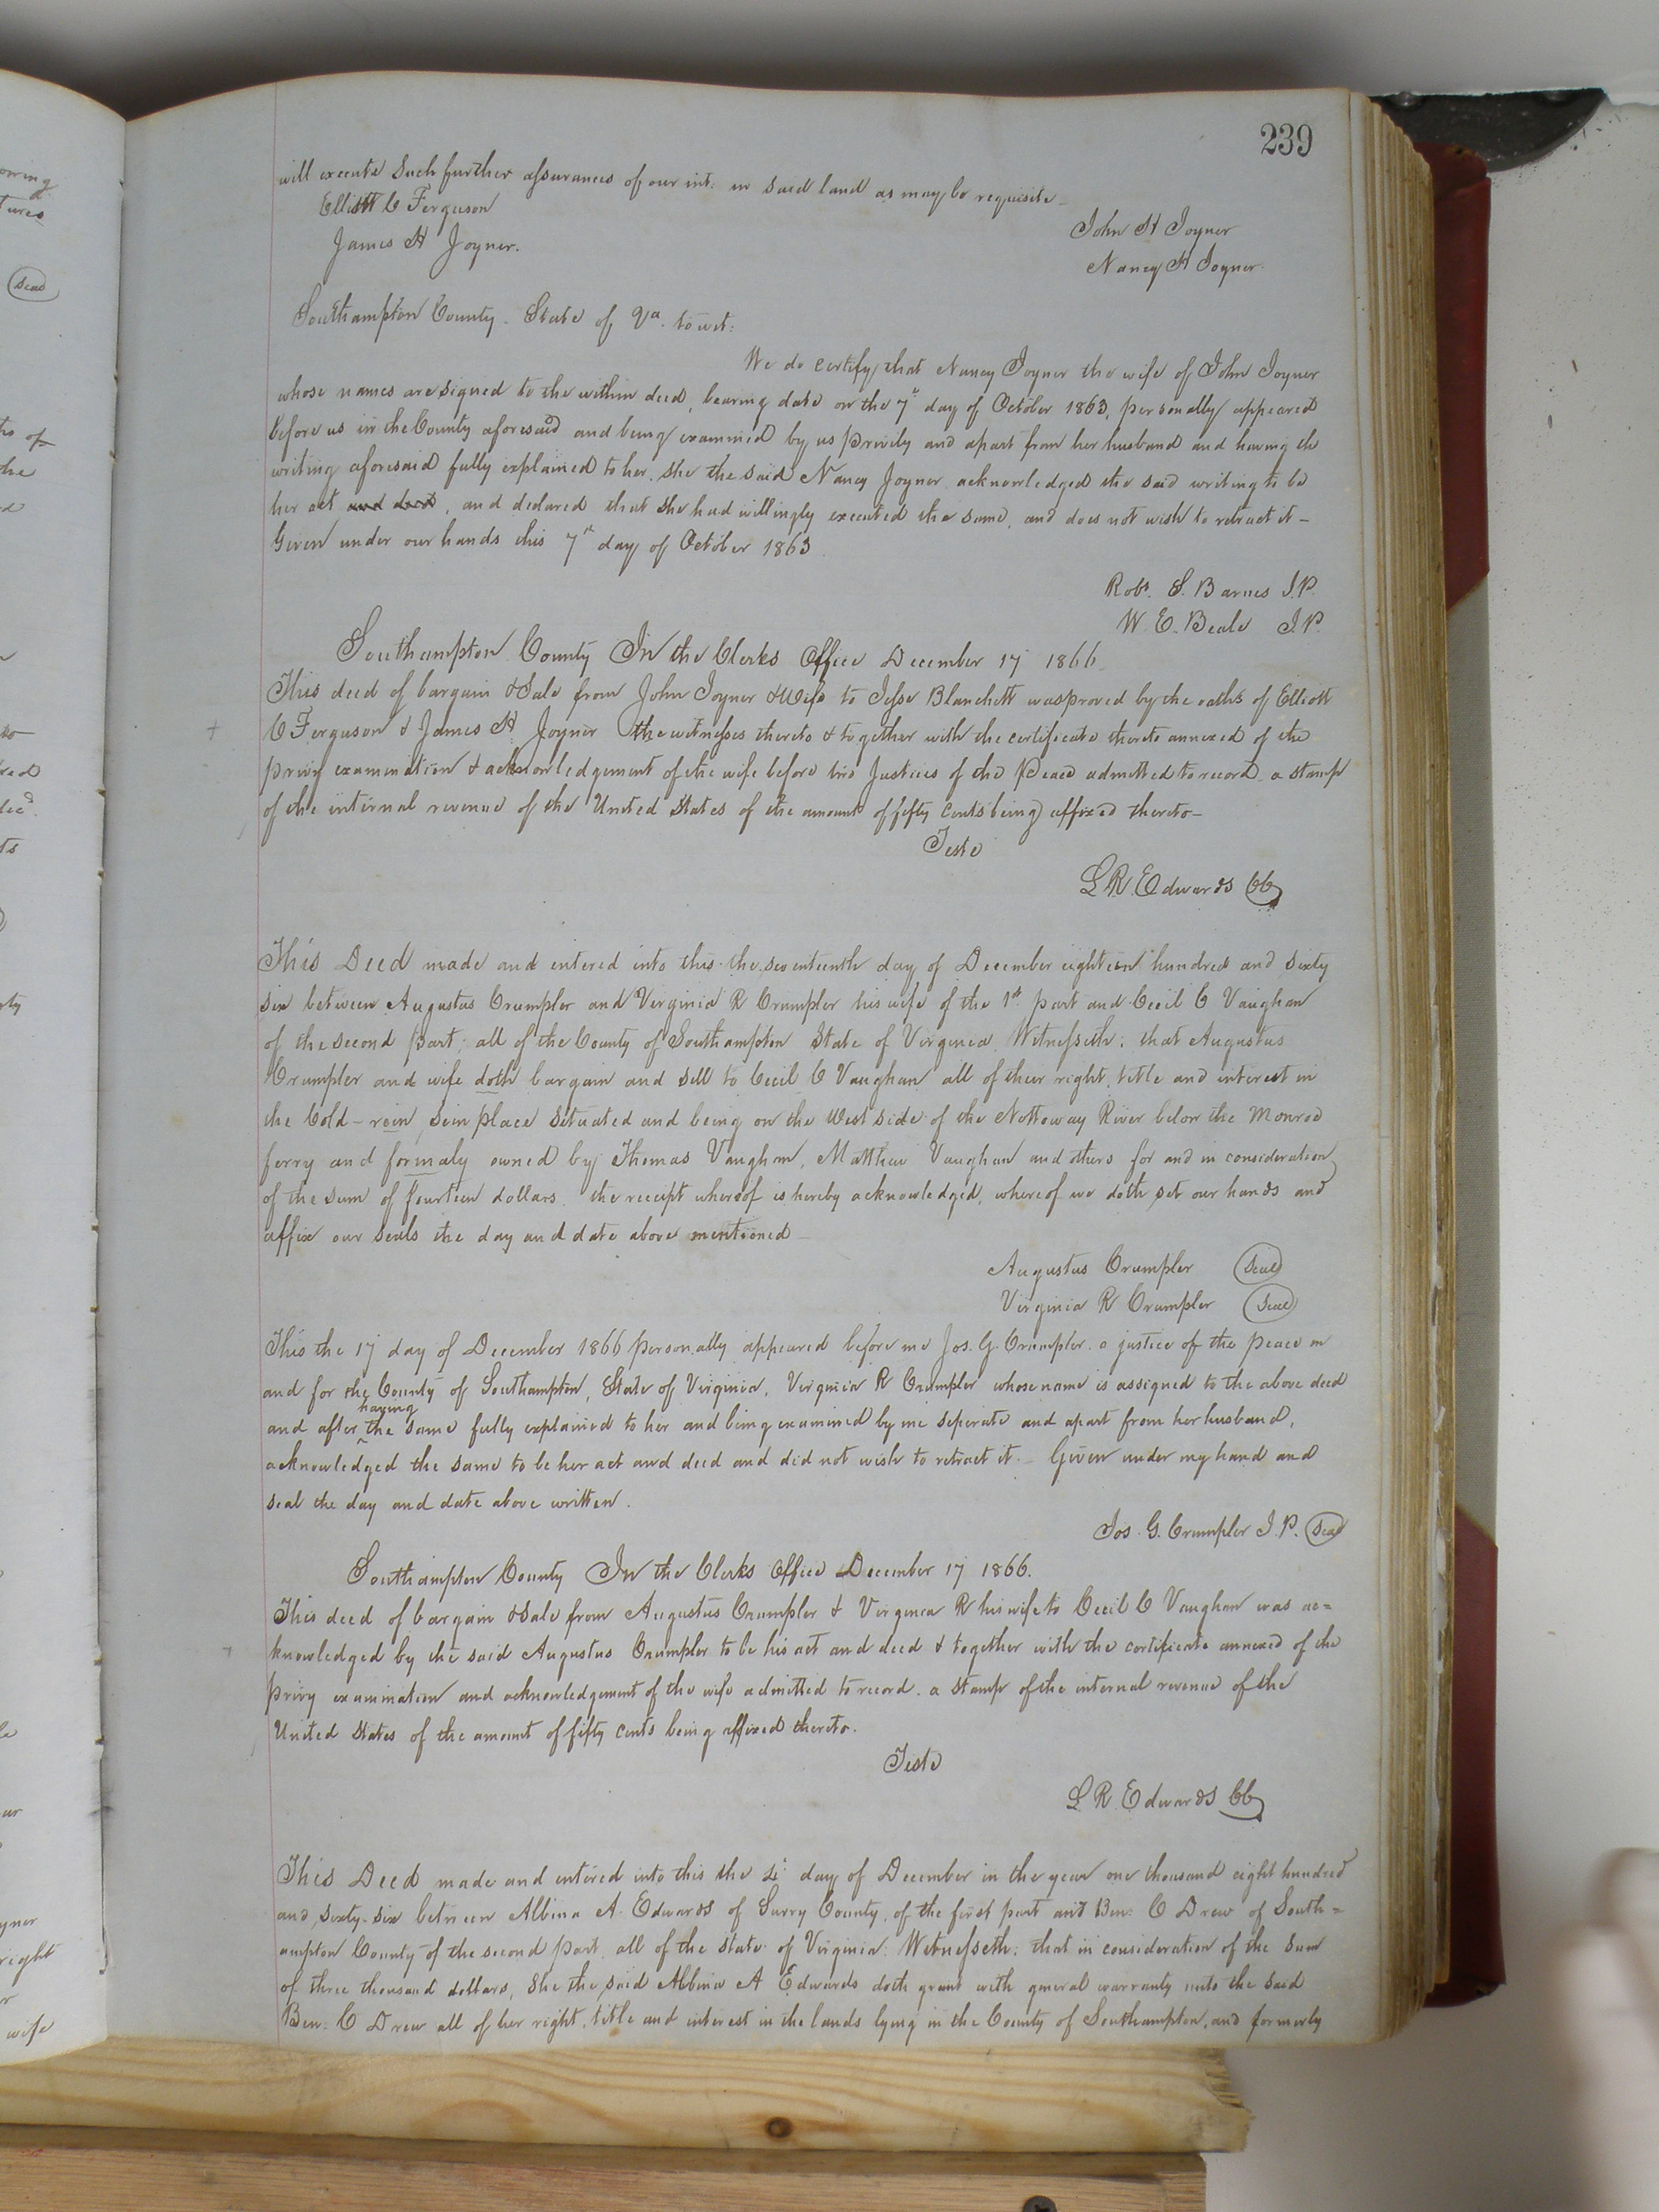 239
will execute Such further assurances of our int: in said land as may be requisite
Elliott C Ferguson
John H Joyner
James H Joyner.
Nancy H Joyner.
Southampton County. State of Va. to wit:
We do certify that Nancy Joyner the wife of John Joyner
whose names are signed to the within deed, bearing date on the 7th day of October 1863, personally appeared
before us in the County aforesaid and being examined by us privily and apart from her husband and having the
writing aforesaid fully explained to her, she the said Nancy Joyner acknowledged the said writing to be
her act and deed, and declared that she had willingly executed the same, and does not wish to retract it –
Given under our hands this 7th day of October 1863
Robt. S. Barnes J.P.
W. E. Beale J.P.
Southampton County In the Clerks Office December 17 1866
This deed of bargain & Sale from John Joyner & Wife to Jesse Blanchett was proved by the oaths of Elliott
C Ferguson & James H. Joyner the witnesses thereto & together with the certificate thereto annexed of the
privy examination & acknowledgement of the wife before two Justices of the Peace admitted to record a stamp
of the internal revenue of the United States of the amount of fifty cents being affixed thereto –
Teste
L R. Edwards CC
This Deed made and entered into this the seventeenth day of December eighteen hundred and sixty
six between Augustus Crumpler and Virginia R Crumpler his wife of the 1st part and Cecil C Vaughan
of the second part; all of the County of Southampton State of Virginia Witnesseth; that Augustus
Crumpler and wife doth bargain and sell to Cecil C Vaughan all of their right, title and interest in
the Cold – rein, sein place situated and being on the West side of the Nottoway River below the Monroe
ferry and formaly owned by Thomas Vaughan, Matthew Vaughan and others for and in consideration
of the sum of fourteen dollars. the receipt whereof is hereby acknowledged, whereof we doth set our hands and
affix our seals the day and date above mentioned
Augustus Crumpler Seal
Virginia R Crumpler Seal
This the 17 day of December 1866 personally appeared before me Jos. G. Crumpler. a justice of the peace in
and for the County of Southampton, State of Virginia, Virginia R Crumpler whose name is assigned to the above deed
and after having the same fully explained to her and being examined by me seperate and apart from her husband,
acknowledged the same to be her act and deed and did not wish to retract it. Given under my hand and
seal the day and date above written.
Jos. G. Crumpler J.P. Seal
Southampton County In the Clerks Office December 17 1866.
This deed of bargain & Sale from Augustus Crumpler & Virginia R his wife to Cecil C Vaughan was ac=
knowledged by the said Augustus Crumpler to be his act and deed & together with the certificate annexed of the
privy examination and acknowledgement of the wife admitted to record. a stamp of the internal revenue of the
United States of the amount of fifty cents being affixed thereto.
Teste
L R. Edwards CC
This Deed made and entered into this the 4th day of December in the year one thousand eight hundred
and sixty-six between Albina A. Edwards of Surry County, of the first part and Ben: C Drew of South=
ampton County of the second part, all of the state of Virginia: Witnesseth: that in consideration of the sum
of three thousand dollars, She the said Albina A Edwards doth grant with general warranty unto the said
Ben: C Drew all of her right, title and interest in the lands lying in the County of Southampton, and formerly